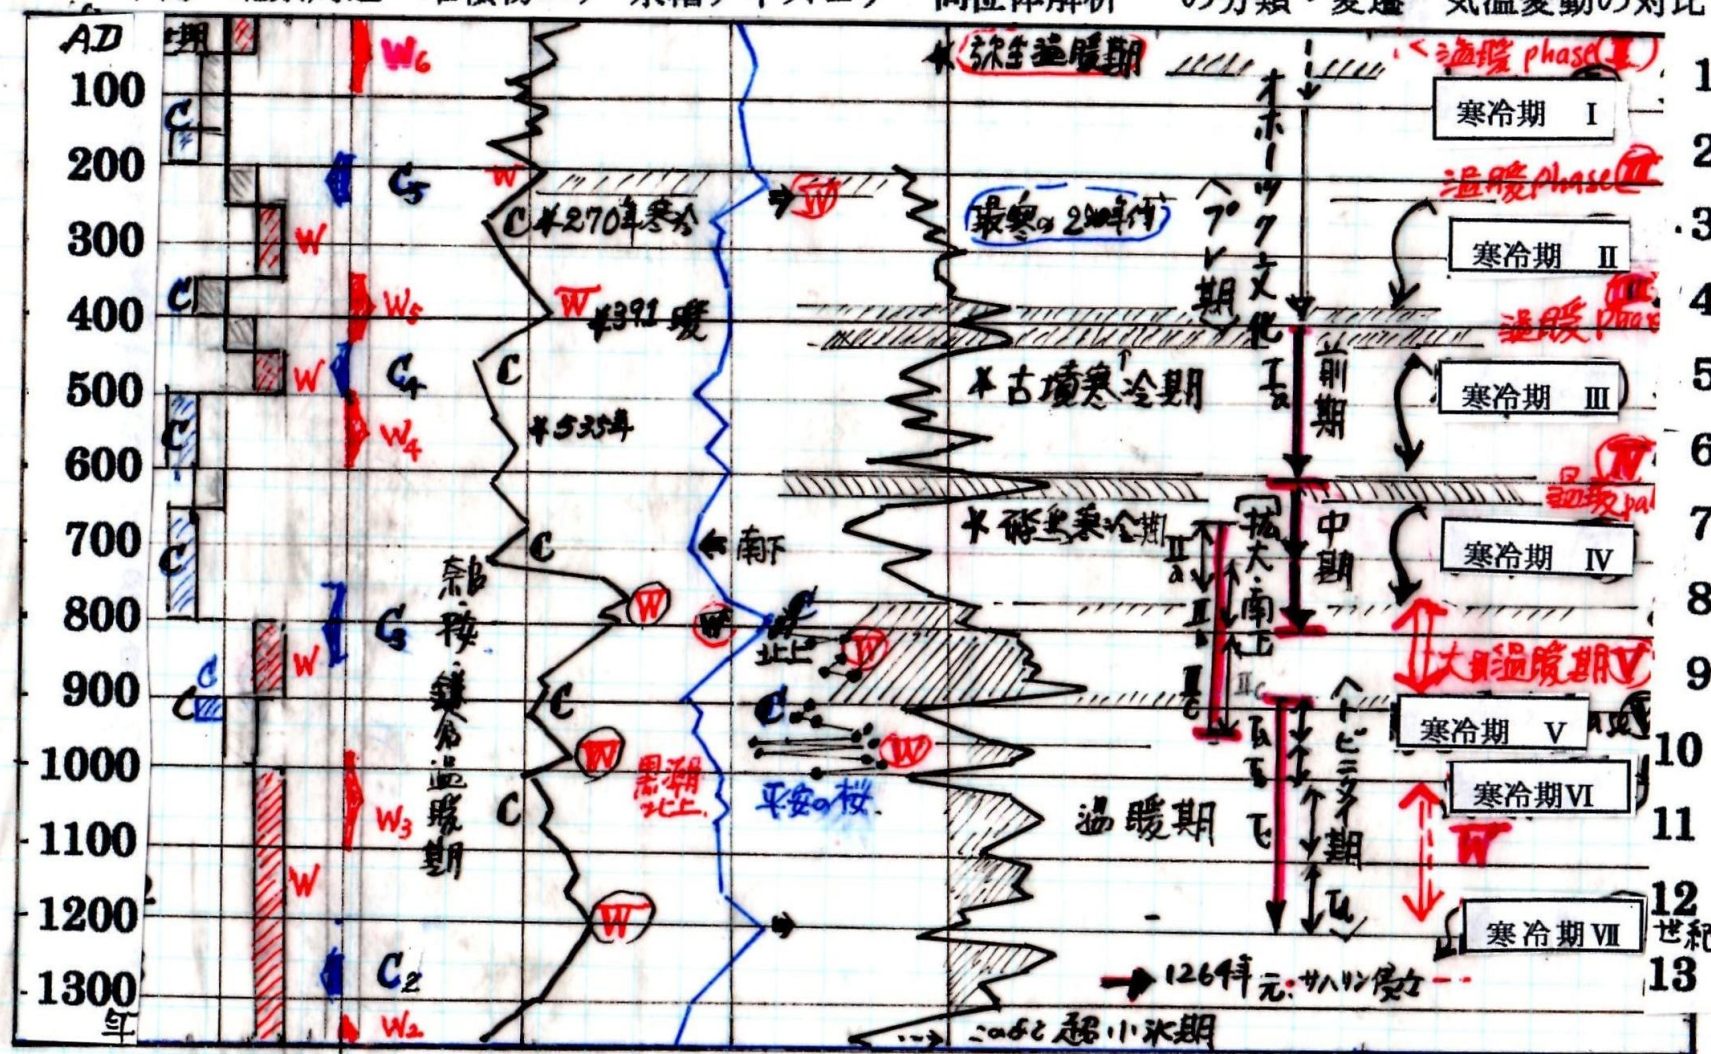 同位体解析
の分類・変遷
気温変動の対比
AD
100
200
300
400
500
600
700
800
900
1000
1100
1200
1300
年
C
C
C
C
C
C
W
W
W
W
W6
C5
W5
C4
W4
C3
W3
C2
W2
W
C *270年寒冷
W *391 暖
C
*535年
C
W
C
W
C
W
奈良・平安・鎌倉温暖期
W
南下
W
北上
W
C
W
黒潮北上
平安の桜
*弥生温暖期
最寒の280年代
*古墳寒冷期
*飛鳥寒冷期
温暖期
1264年 元・サハリン侵寇
このあと超小氷期
オホーツク文化
プレ期
前期
中期
拡大・南下
Ⅱa
Ⅱb
Ⅱc
トビニタイ期
温暖 phase (Ⅰ)
寒冷期 Ⅰ
温暖 phase Ⅱ
寒冷期 Ⅱ
Ⅲ
温暖 phase
寒冷期 Ⅲ
Ⅳ
温暖
寒冷期 Ⅳ
大温暖期 Ⅴ
寒冷期 Ⅴ
寒冷期 Ⅵ
W
寒冷期 Ⅶ
1
2
3
4
5
6
7
8
9
10
11
12
世紀
13